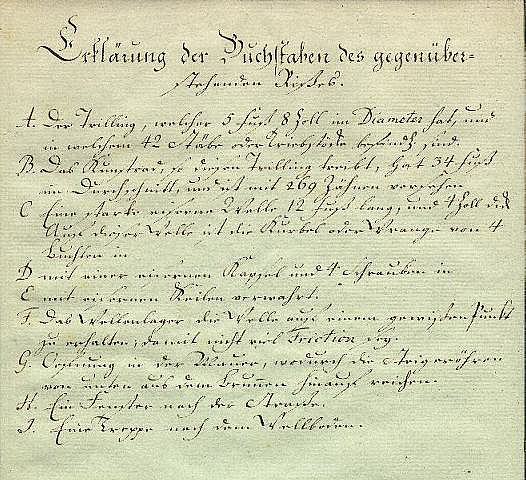 Erklärung der Buchstaben des gegenüber-
stehenden Risses.
A. Der Trilling, welcher 5 Fuß 8 Zoll im Diameter hat, und
in welchem 42 Stäbe oder Triebstöcke befindl. sind.
B. Das Kunstrad, so diesen Trilling treibt, hat 34 Fuß
im Durchschnitt, und ist mit 269 Zähnen versehen
C Eine starke eiserne Welle 12 Fuß lang, und 4 Zoll dick
Auf dieser Welle ist die Kurbel oder Wrange von 4
Buchten in
D mit einer eisernen Kapsel und 4 Schrauben in
E mit eisernen Keilen verwahrt.
F. Das Wellenlager die Welle auf einem gewissen Punkt
zu erhalten, damit nicht viel Friction sey.
G. Oefnung in der Mauer, wodurch die Steigeröhren
von unten aus dem Brunnen hinauf reichen.
H. Ein Fenster nach der Straße.
J. Eine Treppe nach dem Wellboden.